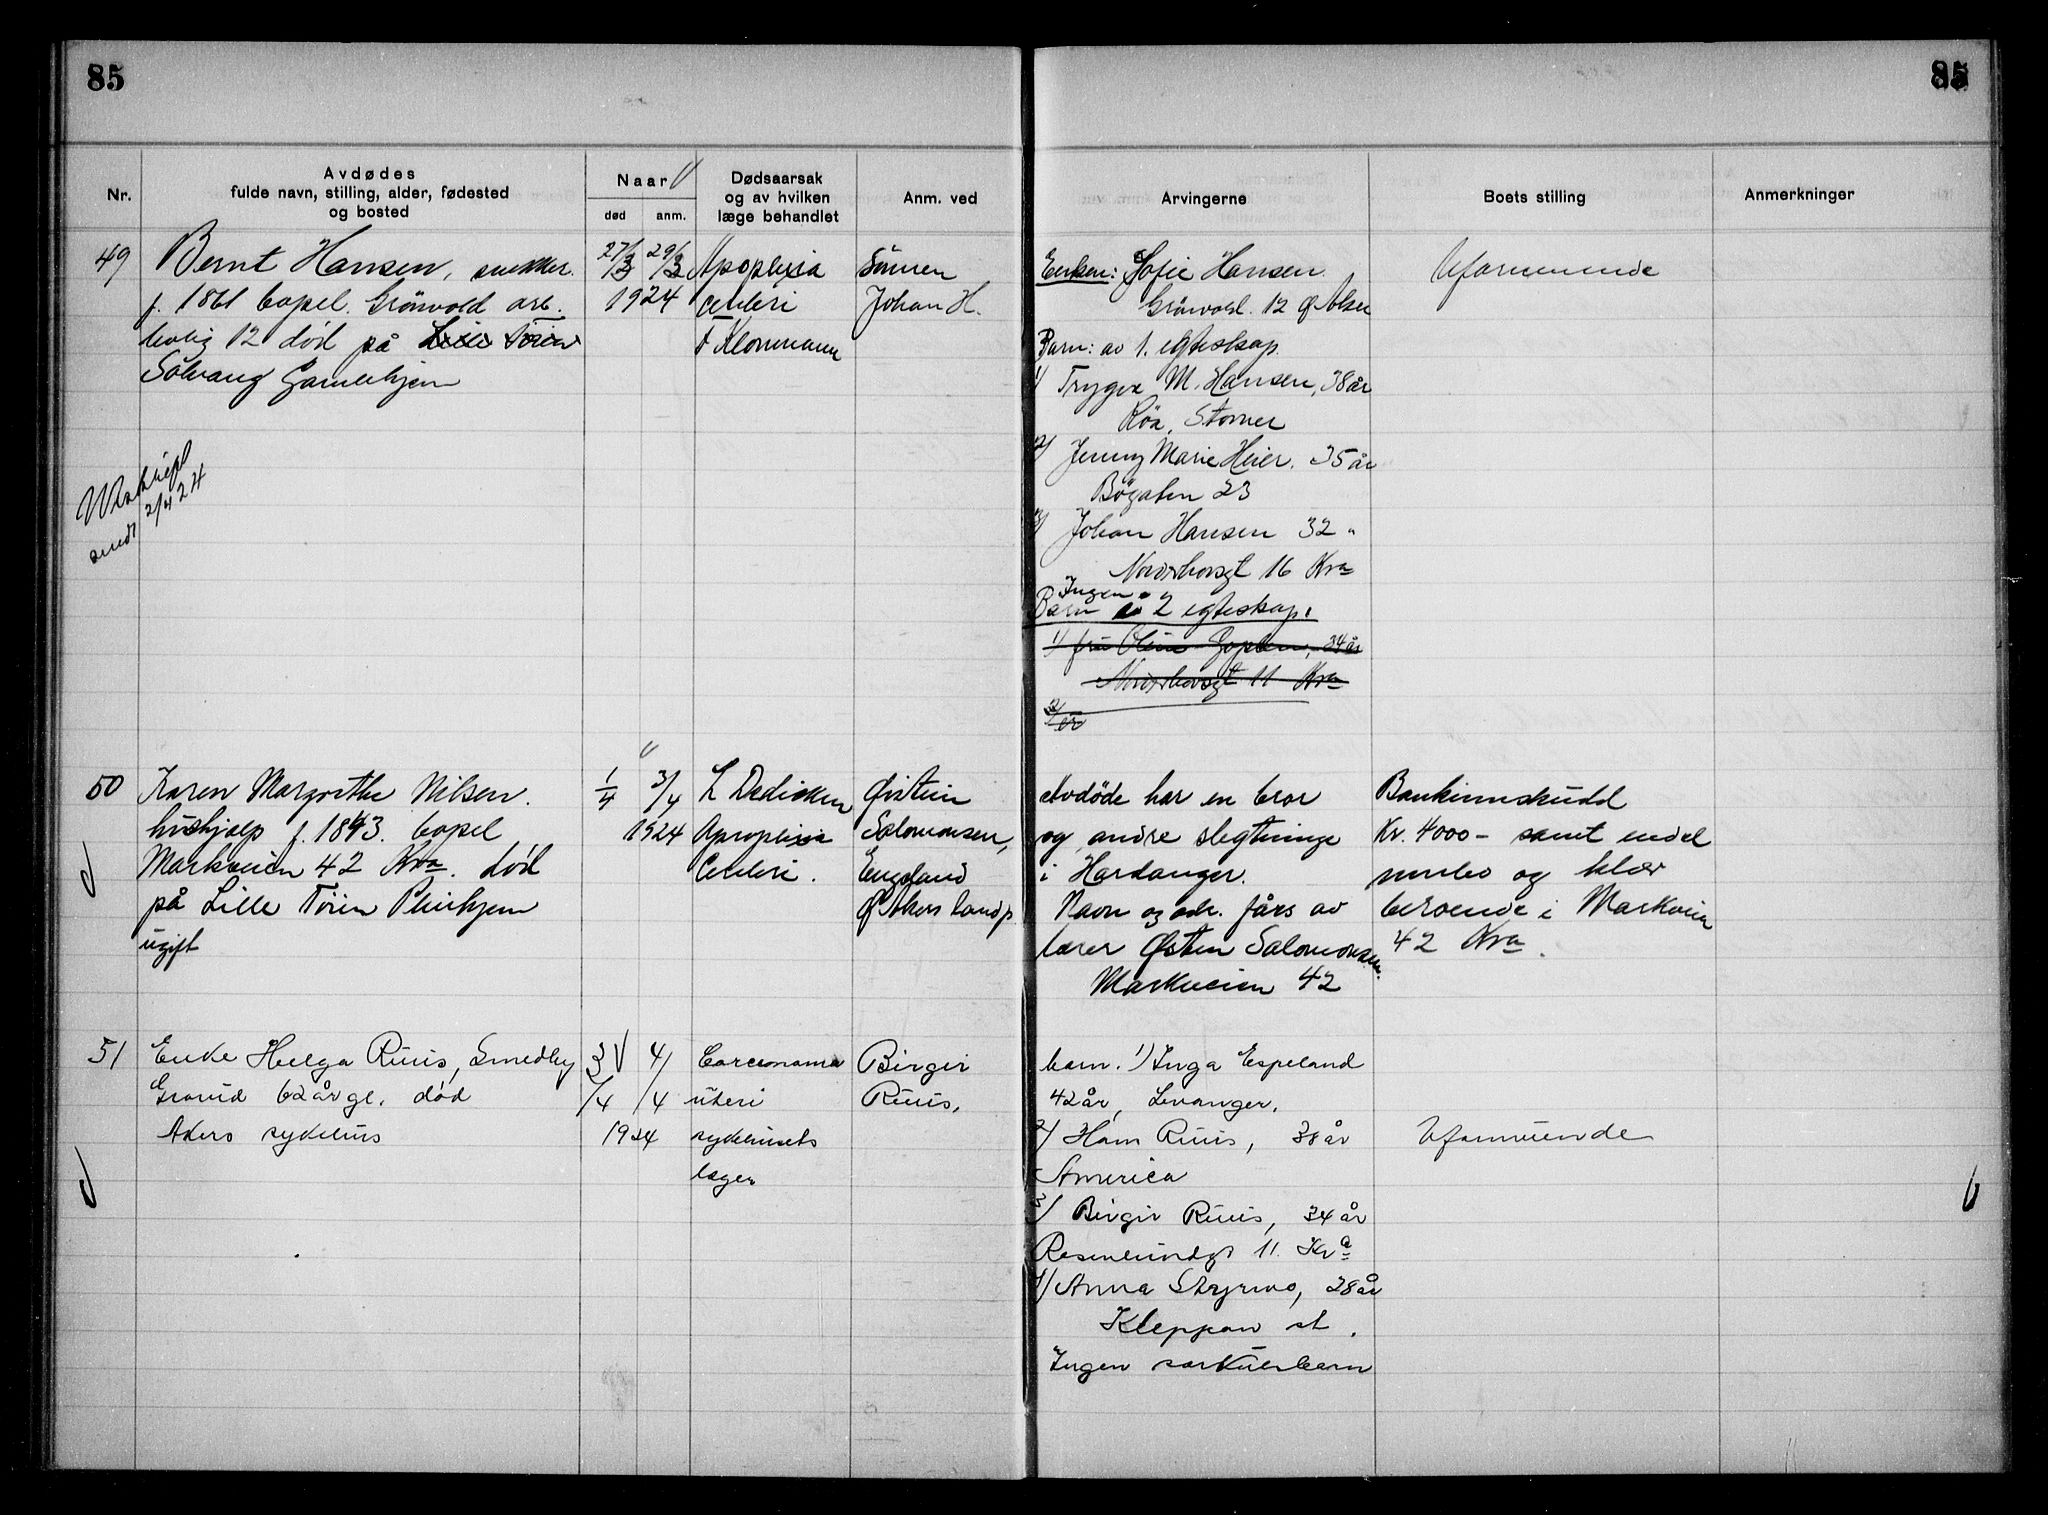 85
85
Nr.
Avdødes
fulde navn, stilling, alder, fødested
og bosted
Naar
død
anm.
Dødsaarsak
og av hvilken
læge behandlet
Anm. ved
Arvingerne
Boets stilling
Anmerkninger
49
Bernt Hansen, snekker.
f. 1861 bopel. Grönvold arb.
bolig 12 död på Lille Tøien
Solvang Gamlehjem
27/3 29/3
1924
Apoplexia
cerebri
F Klonmann
Sönnen
Johan H.
Enken: Sofie Hansen
Grönvold. 12 Ø Aker
Barn: av 1. egteskap.
1) Trygve M. Hansen, 38 år
Röa, St
2) Jenny Marie Heier. 35 år
Bögaten 23
3) Johan Hansen 32 "
Norderhovsgt 16 Kra
Ingen
Barn i 2 egteskap.
1) fru Oline 34 år
Norderhovsgt 11 Kra
2/ er
Uformuende
sendt 2/4 24
50
Karen Margrethe Nilsen.
hushjælp f. 1843. bopel
Markveien 42 Kra. død
på Lille Töien Pleiehjem
ugift
1/4 3/4
1924
L Dedichen
Apoplexia
Cerebri.
Øistein
Salomonsen,
Engeland
Ø Akers landp.
Avdöde har en bror
og andre slegtninge
i Hardanger.
Navn og adr. fåes av
lærer Østen Salomonsen.
Markveien 42
Bankinnskudd
Kr. 4000 - samt endel
møbler og klær
beroende i Markveien
42 Kra.
51
Enke Helga Ruus, Smedby
Grorud 62 år gl. död
Akers sykehus
3/4 4/4
1924
Carcenoma
uteri
sykehusets
læger
Birgir
Ruus,
barn. 1) Inga Espeland
42 år, Levanger.
2) Hans Ruus, 38 år
America
3) Birgir Ruus, 34 år
11. Kra
4) Anna Styrmo, 28 år
Kleppan st.
Ingen særkulsbarn
Uformuende